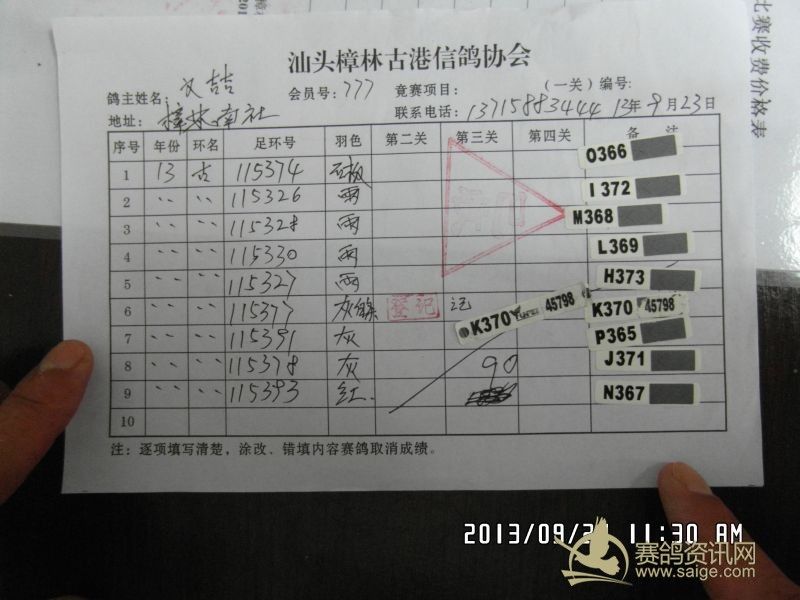 比赛收费价格表
汕头樟林古港信鸽协会
鸽主姓名: 会员号: 777 竟赛项目: (一关) 编号:
地址: 樟林南社 联系电话: 13715883444 13年9月23日
序号 年份 环名 足环号 羽色 第二关 第三关 第四关 备 注
1 13 古 115374 石板 O366
2 〃 〃 115326 雨 I372
3 〃 〃 115328 雨 M368
4 〃 〃 115330 雨 L369
5 115327 雨 H373
6 〃 〃 115377 登记 记 K370 45798 K370 45798
7 〃 〃 115391 灰 P365
8 〃 〃 115378 灰 90 J371
9 〃 〃 115393 红 N367
10
注: 逐项填写清楚，涂改、错填内容赛鸽取消成绩。
2013/09/2 11:30 AM
赛鸽资讯网
www.saige.com